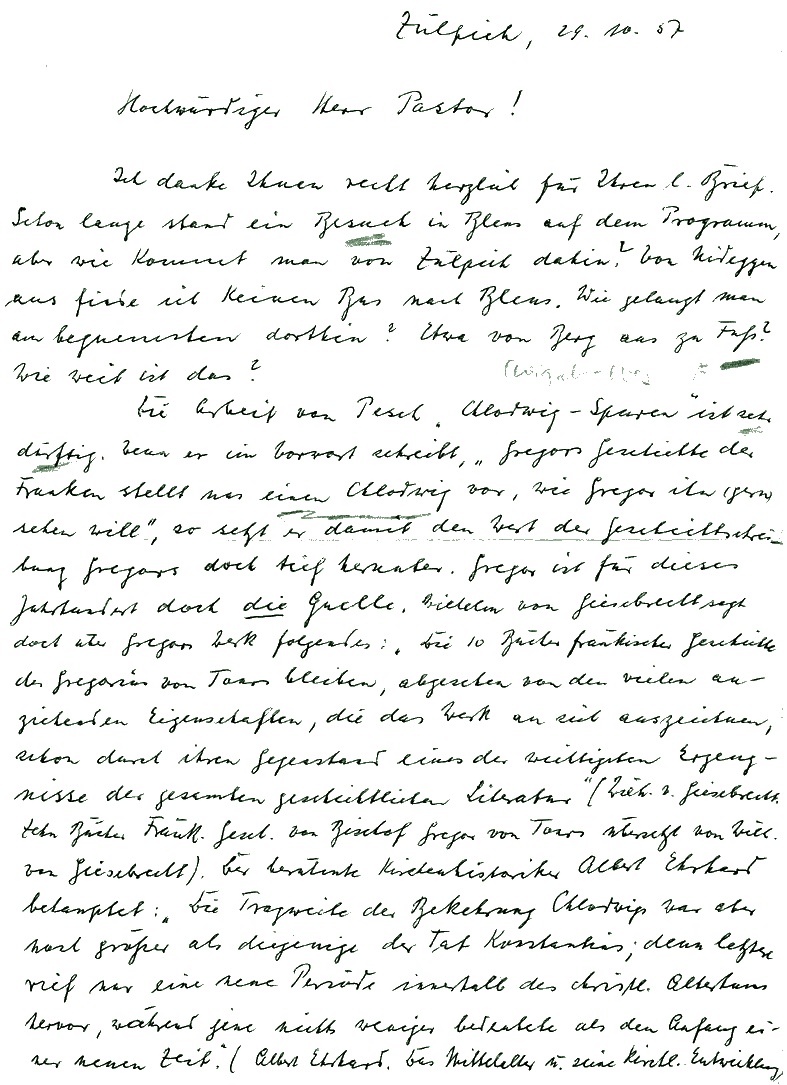 Zülpich, 29. 10. 57
Hochwürdiger Herr Pastor!
Ich danke Ihnen recht herzlich für Ihren l. Brief.
Schon lange stand ein Besuch in Blens auf dem Programm,
aber wie kommt man von Zülpich dahin? Von Nideggen
aus finde ich keinen Bus nach Blens. Wie gelangt man
am bequemsten dorthin? Etwa von Berg aus zu Fuß?
Wie weit ist das?
Die Arbeit von Pesch „Chlodwig-Spuren" ist sehr
dürftig. Wenn er im Vorwort schreibt, „Gregors Geschichte der
Franken stellt uns einen Chlodwig vor, wie Gregor ihn gern
sehen will", so setzt er damit den Wert der Geschichtschrei-
bung Gregors doch tief herunter. Gregor ist für dieses
Jahrhundert doch die Quelle. Wilhelm von Giesebrecht sagt
doch über Gregors Werk folgendes: „Die 10 Bücher fränkischer Geschichte
des Gregorius von Tours bleiben, abgesehen von den vielen an-
ziehenden Eigenschaften, die das Werk an sich auszeichnen,
schon durch ihren Gegenstand eines der wichtigsten Erzeug-
nisse der gesamten geschichtlichen Literatur" (Wilh. v. Giesebrecht.
Zehn Bücher Fränk. Gesch. von Bischof Gregor von Tours übersetzt von Wilh.
von Giesebrecht). Der berühmte Kirchenhistoriker Albert Ehrhard
behauptet: „Die Tragweite der Bekehrung Chlodwigs war aber
noch größer als diejenige der Tat Konstantins; denn letztere
rief nur eine neue Periode innerhalb des christl. Altertums
hervor, während jene nichts weniger bedeutete als den Anfang ei-
ner neuen Zeit." (Albert Ehrhard. Das Mittelalter u. seine kirchl. Entwicklung,